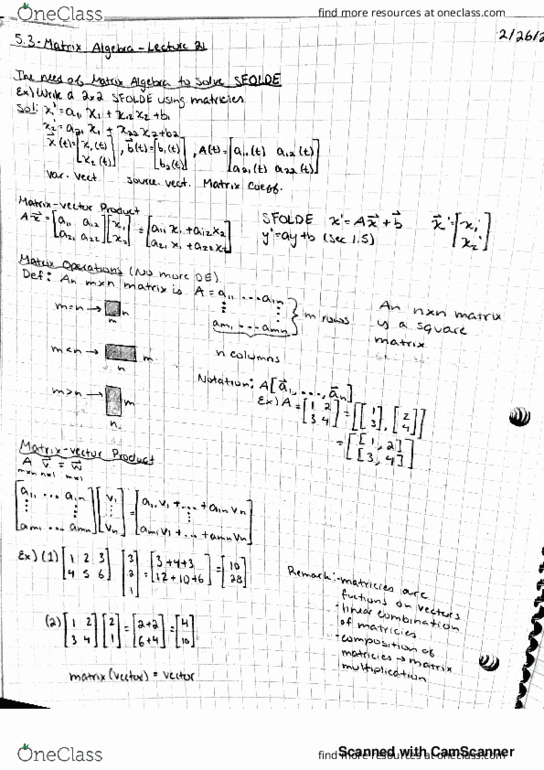 OneClass
find more resources at oneclass.com
2/26/2
5.3-Matrix Algebra-Lecture 21
The need of Matrix Algebra to Solve SFOLDE
Ex) Write a 2x2 SFOLDE using matricies
Sol: x₁' = a₁₁ x₁ + x₁₂ x₂ + b₁
x₂' = a₂₁ x₁ + x₂₂ x₂ + b₂
x⃗(t) = [x₁(t) x₂(t)], b⃗(t) = [b₁(t) b₂(t)], A(t) = [a₁₁(t) a₁₂(t) a₂₁(t) a₂₂(t)]
var. vect. source. vect. Matrix Coeff.
Matrix-vector Product
Ax⃗ = [a₁₁ a₁₂ a₂₁ a₂₂] [x₁ x₂] = [a₁₁ x₁ + a₁₂ x₂ a₂₁ x₁ + a₂₂ x₂]
SFOLDE x⃗' = Ax⃗ + b⃗ x⃗' = [x₁' x₂']
y' = ay + b (sec 1.5)
Matrix Operations (No more DE)
Def: An mxn matrix is A = a₁₁ ... a₁ₙ
⋮ ⋮ } m rows
aₘ₁ ... aₘₙ
n columns
An nxn matrix
is a square
matrix
m=n → n
n
m<n → m
n
m>n → m
n
Notation: A[a⃗₁, ..., a⃗ₙ]
Ex) A = [1 2 3 4] = [[1 3], [2 4]]
= [[1, 2] [3, 4]]
Matrix-vector Product
A v⃗ = w⃗
mxn nx1 mx1
[a₁₁ ... a₁ₙ ⋮ ⋮ aₘ₁ ... aₘₙ] [v₁ ⋮ vₙ] = [a₁₁ v₁ + ... + a₁ₙ vₙ ⋮ aₘ₁ v₁ + ... + aₘₙ vₙ]
Ex) (1) [1 2 3 4 5 6] [3 2 1] = [3+4+3 12+10+6] = [10 28]
(2) [1 2 3 4] [2 1] = [2+2 6+4] = [4 10]
matrix (vector) = vector
Remark: -matricies are
fuctions on vectors
-linear combination
of matricies
-composition of
matricies → matrix
multiplication
OneClass
find more resources at oneclass.com
Scanned with CamScanner